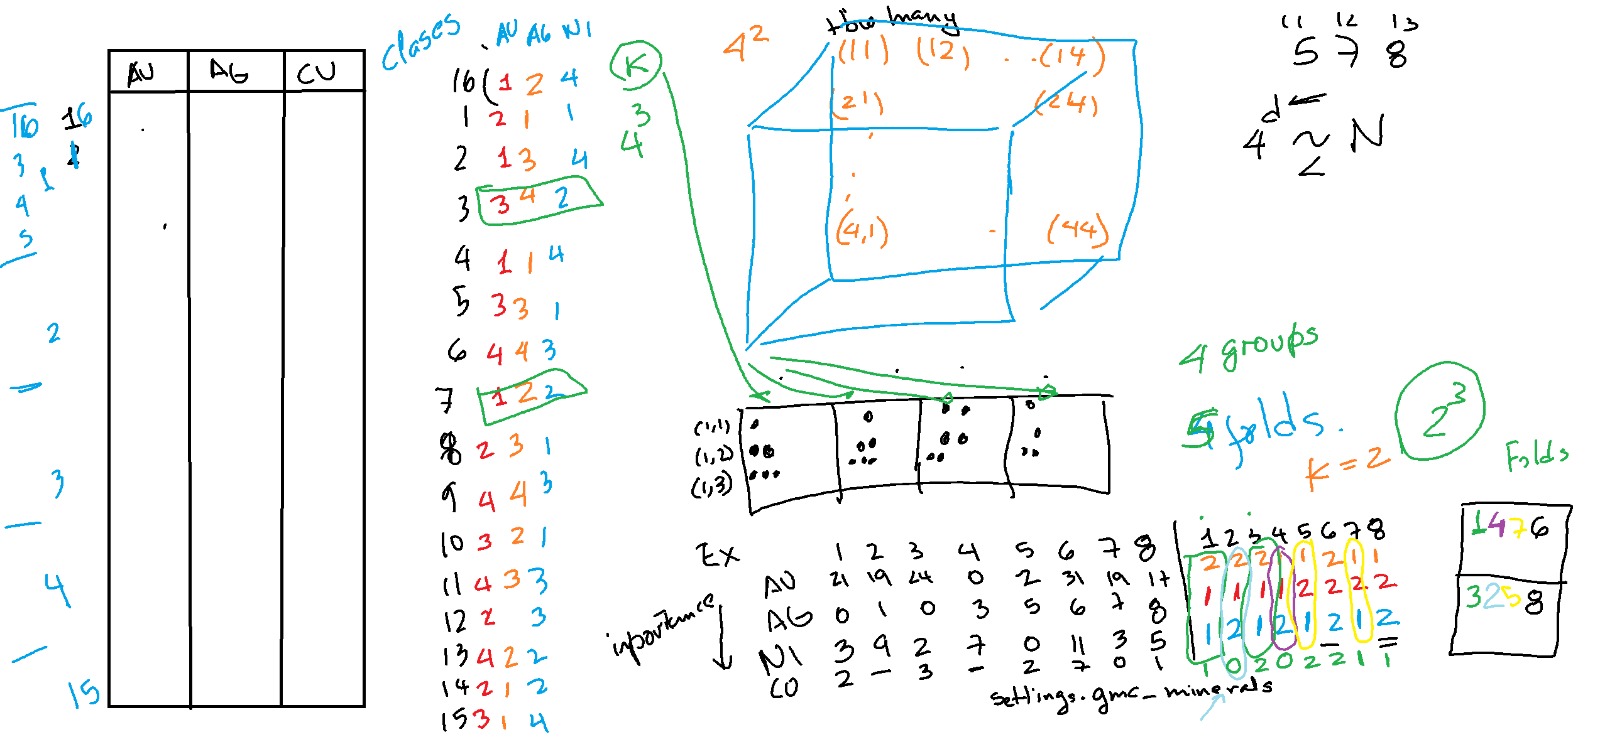 AU AG CU
16 16
3
1
4
5
2
3
4
15
clases
AU AG NI
16 ( 1 2 4
1 2 1 1
2 1 3 4
3 3 4 2
4 1 1 4
5 3 3 1
6 4 4 3
7 1 2 2
8 2 3 1
9 4 4 3
10 3 2 1
11 4 3 3
12 2 3
13 4 2 2
14 2 1 2
15 3 1 4
K
3
4
How many
4²
(11) (12) . . . (14)
(21) (24)
(4,1) (44)
11 12 13
5 7 8
d
4 ~ N
<
(1,1)
(1,2)
(1,3)
4 groups
5 folds.
K = 2
2³
Folds
1 4 7 6
3 2 5 8
Ex 1 2 3 4 5 6 7 8
AU 21 19 24 0 2 31 19 17
AG 0 1 0 3 5 6 7 8
NI 3 9 2 7 0 11 3 5
CO 2 - 3 - 2 7 0 1
inportance
1 2 3 4 5 6 7 8
2 2 2 1 1 2 1 1
1 1 1 1 2 2 2 2
1 2 1 2 1 2 1 2
1 0 2 0 2 2 1 1
settings.gmc_minerals